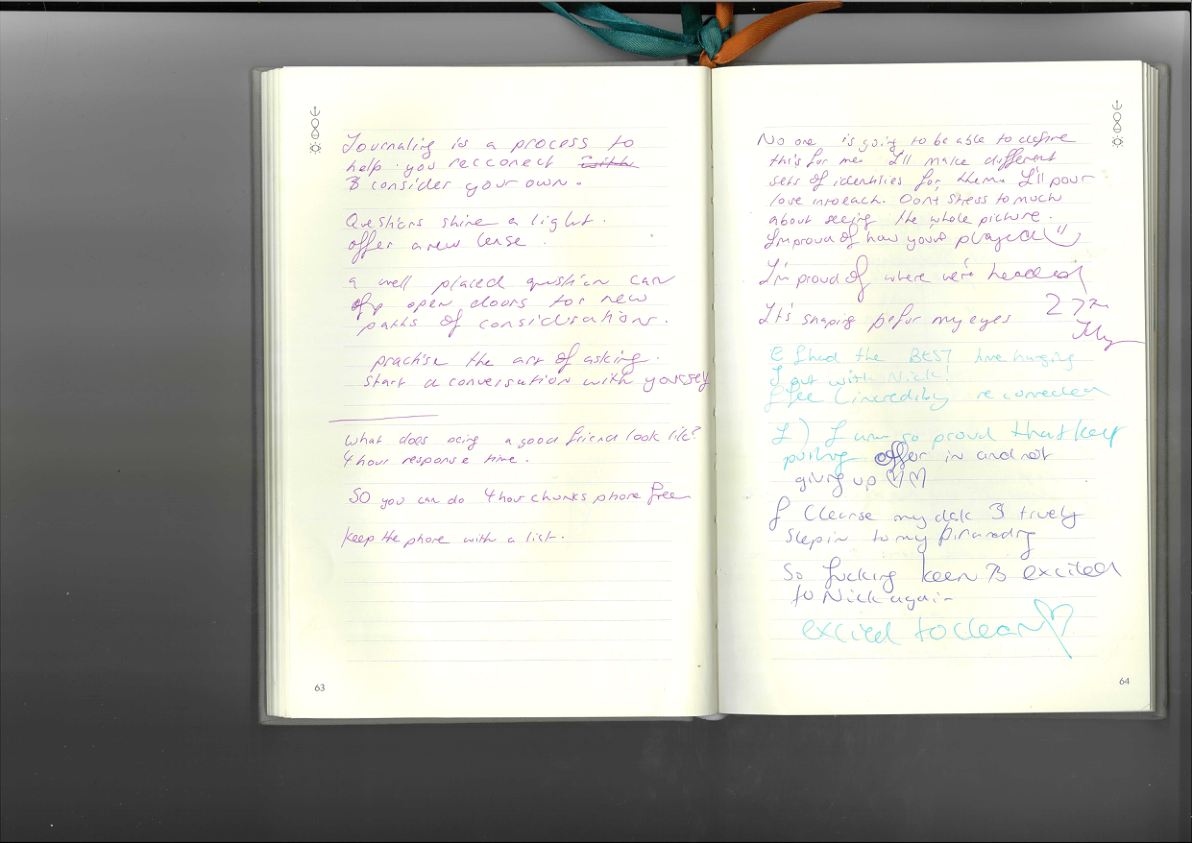 Journaling is a process to
help you recconect
& consider your own.
Questions shine a light.
offer a new lense.
a well placed question can
open doors for new
paths of considerations.
practise the art of asking.
start a conversation with yourself
What does being a good friend look like?
4 hour response time.
SO you can do 4 hour chunks phone free
keep the phone with a list.
63
No one is going to be able to define
this for me. I'll make different
sets of identities for them. I'll pour
love into each. Dont stress to much
about seeing the whole picture.
I'm proud of how you've played
I'm proud of where we're headed
27th
July
It's shaping befor my eyes
I had the BEST time hanging
out with Nick!
I feel incredibly reconnected
I) I am so proud that I keep
putting offer in and not
giving up ♡♡
I Cleanse my
step in to my
So fucking keen & excited
to Nick again
excited to clean ♡
64